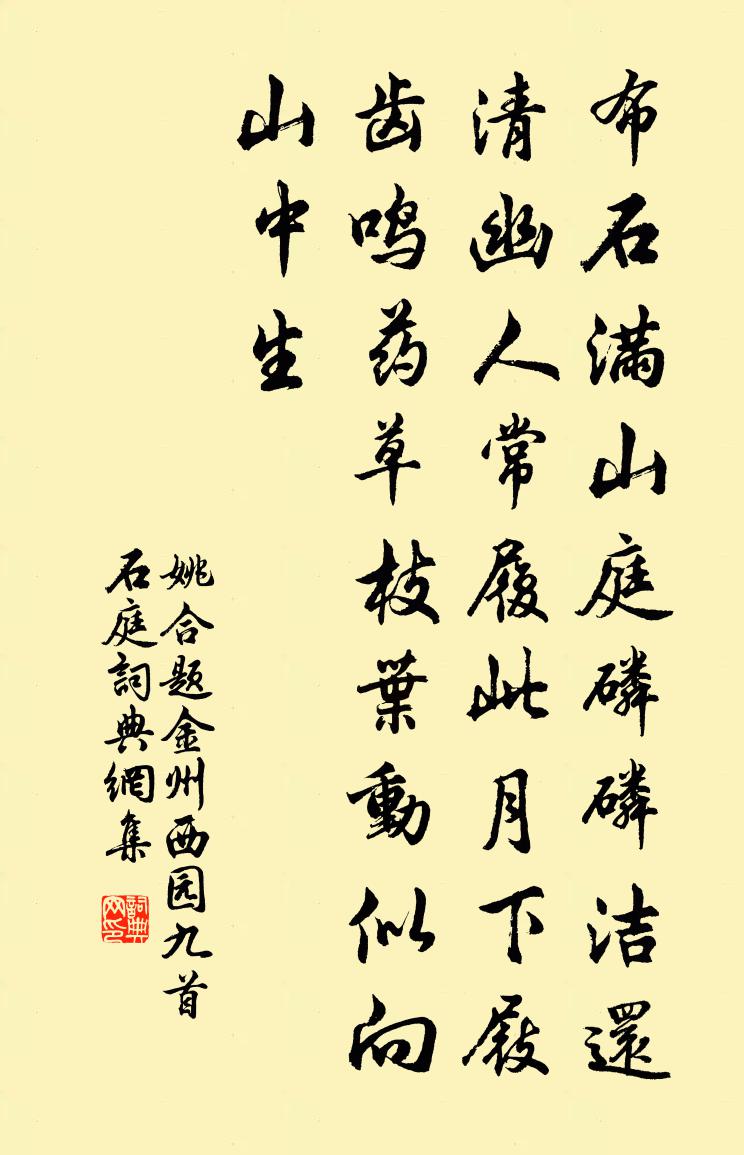 布石满山庭磷磷洁還
清幽人常履此月下屐
齿鸣药草枝葉動似向
山中生
姚合题金州西园九首
石庭詞典網集
詞典网印